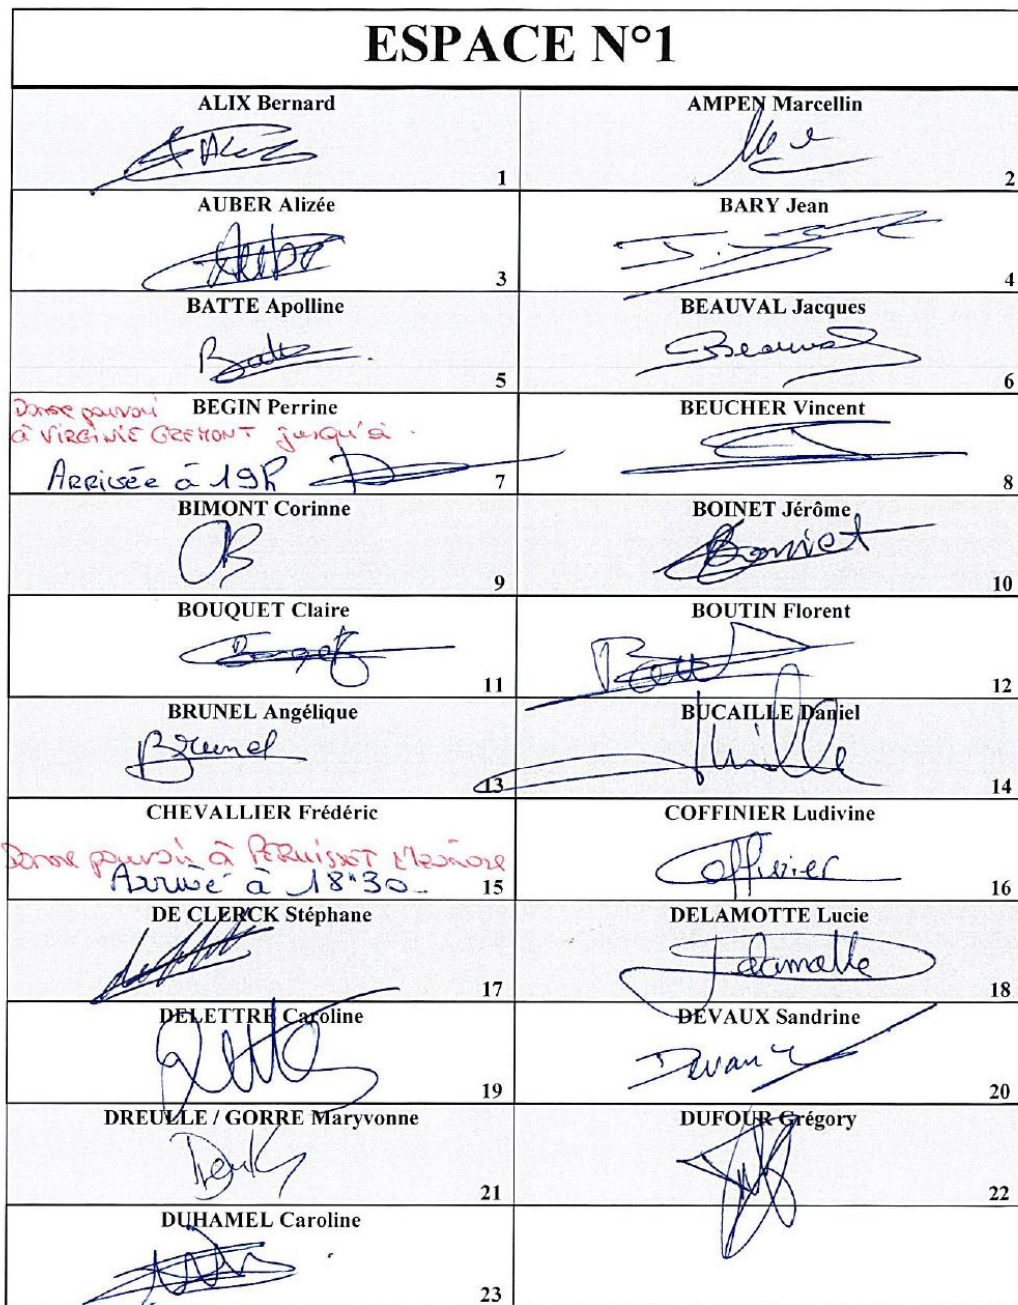 ESPACE N°1
ALIX Bernard
1
AMPEN Marcellin
2
AUBER Alizée
3
BARY Jean
4
BATTE Apolline
Batte
5
BEAUVAL Jacques
Beauval
6
Donne pouvoir
BEGIN Perrine
à VIRGINIE GREMONT jusqu'à
Arrivée à 19h
7
BEUCHER Vincent
8
BIMONT Corinne
CB
9
BOINET Jérôme
Boinet
10
BOUQUET Claire
11
BOUTIN Florent
12
BRUNEL Angélique
Brunel
13
BUCAILLE Daniel
14
CHEVALLIER Frédéric
Donne pouvoir à PERNISSOT Eléonore
Arrivé à 18h30
15
COFFINIER Ludivine
Coffinier
16
DE CLERCK Stéphane
17
DELAMOTTE Lucie
Delamotte
18
DELETTRE Caroline
19
DEVAUX Sandrine
Devaux
20
DREULLE / GORRE Maryvonne
21
DUFOUR Grégory
22
DUHAMEL Caroline
23